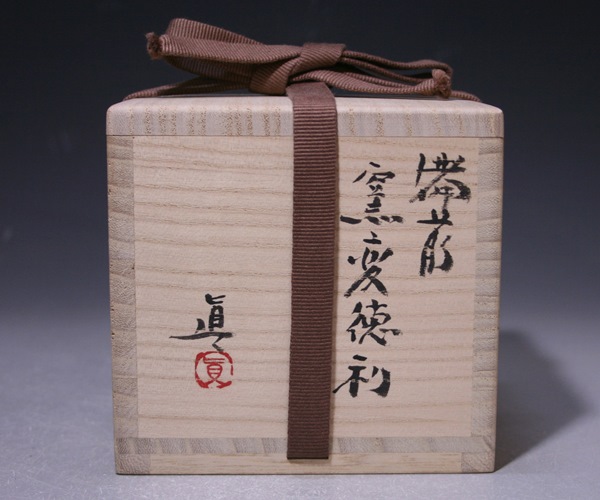 備前
窯変徳利
眞
眞